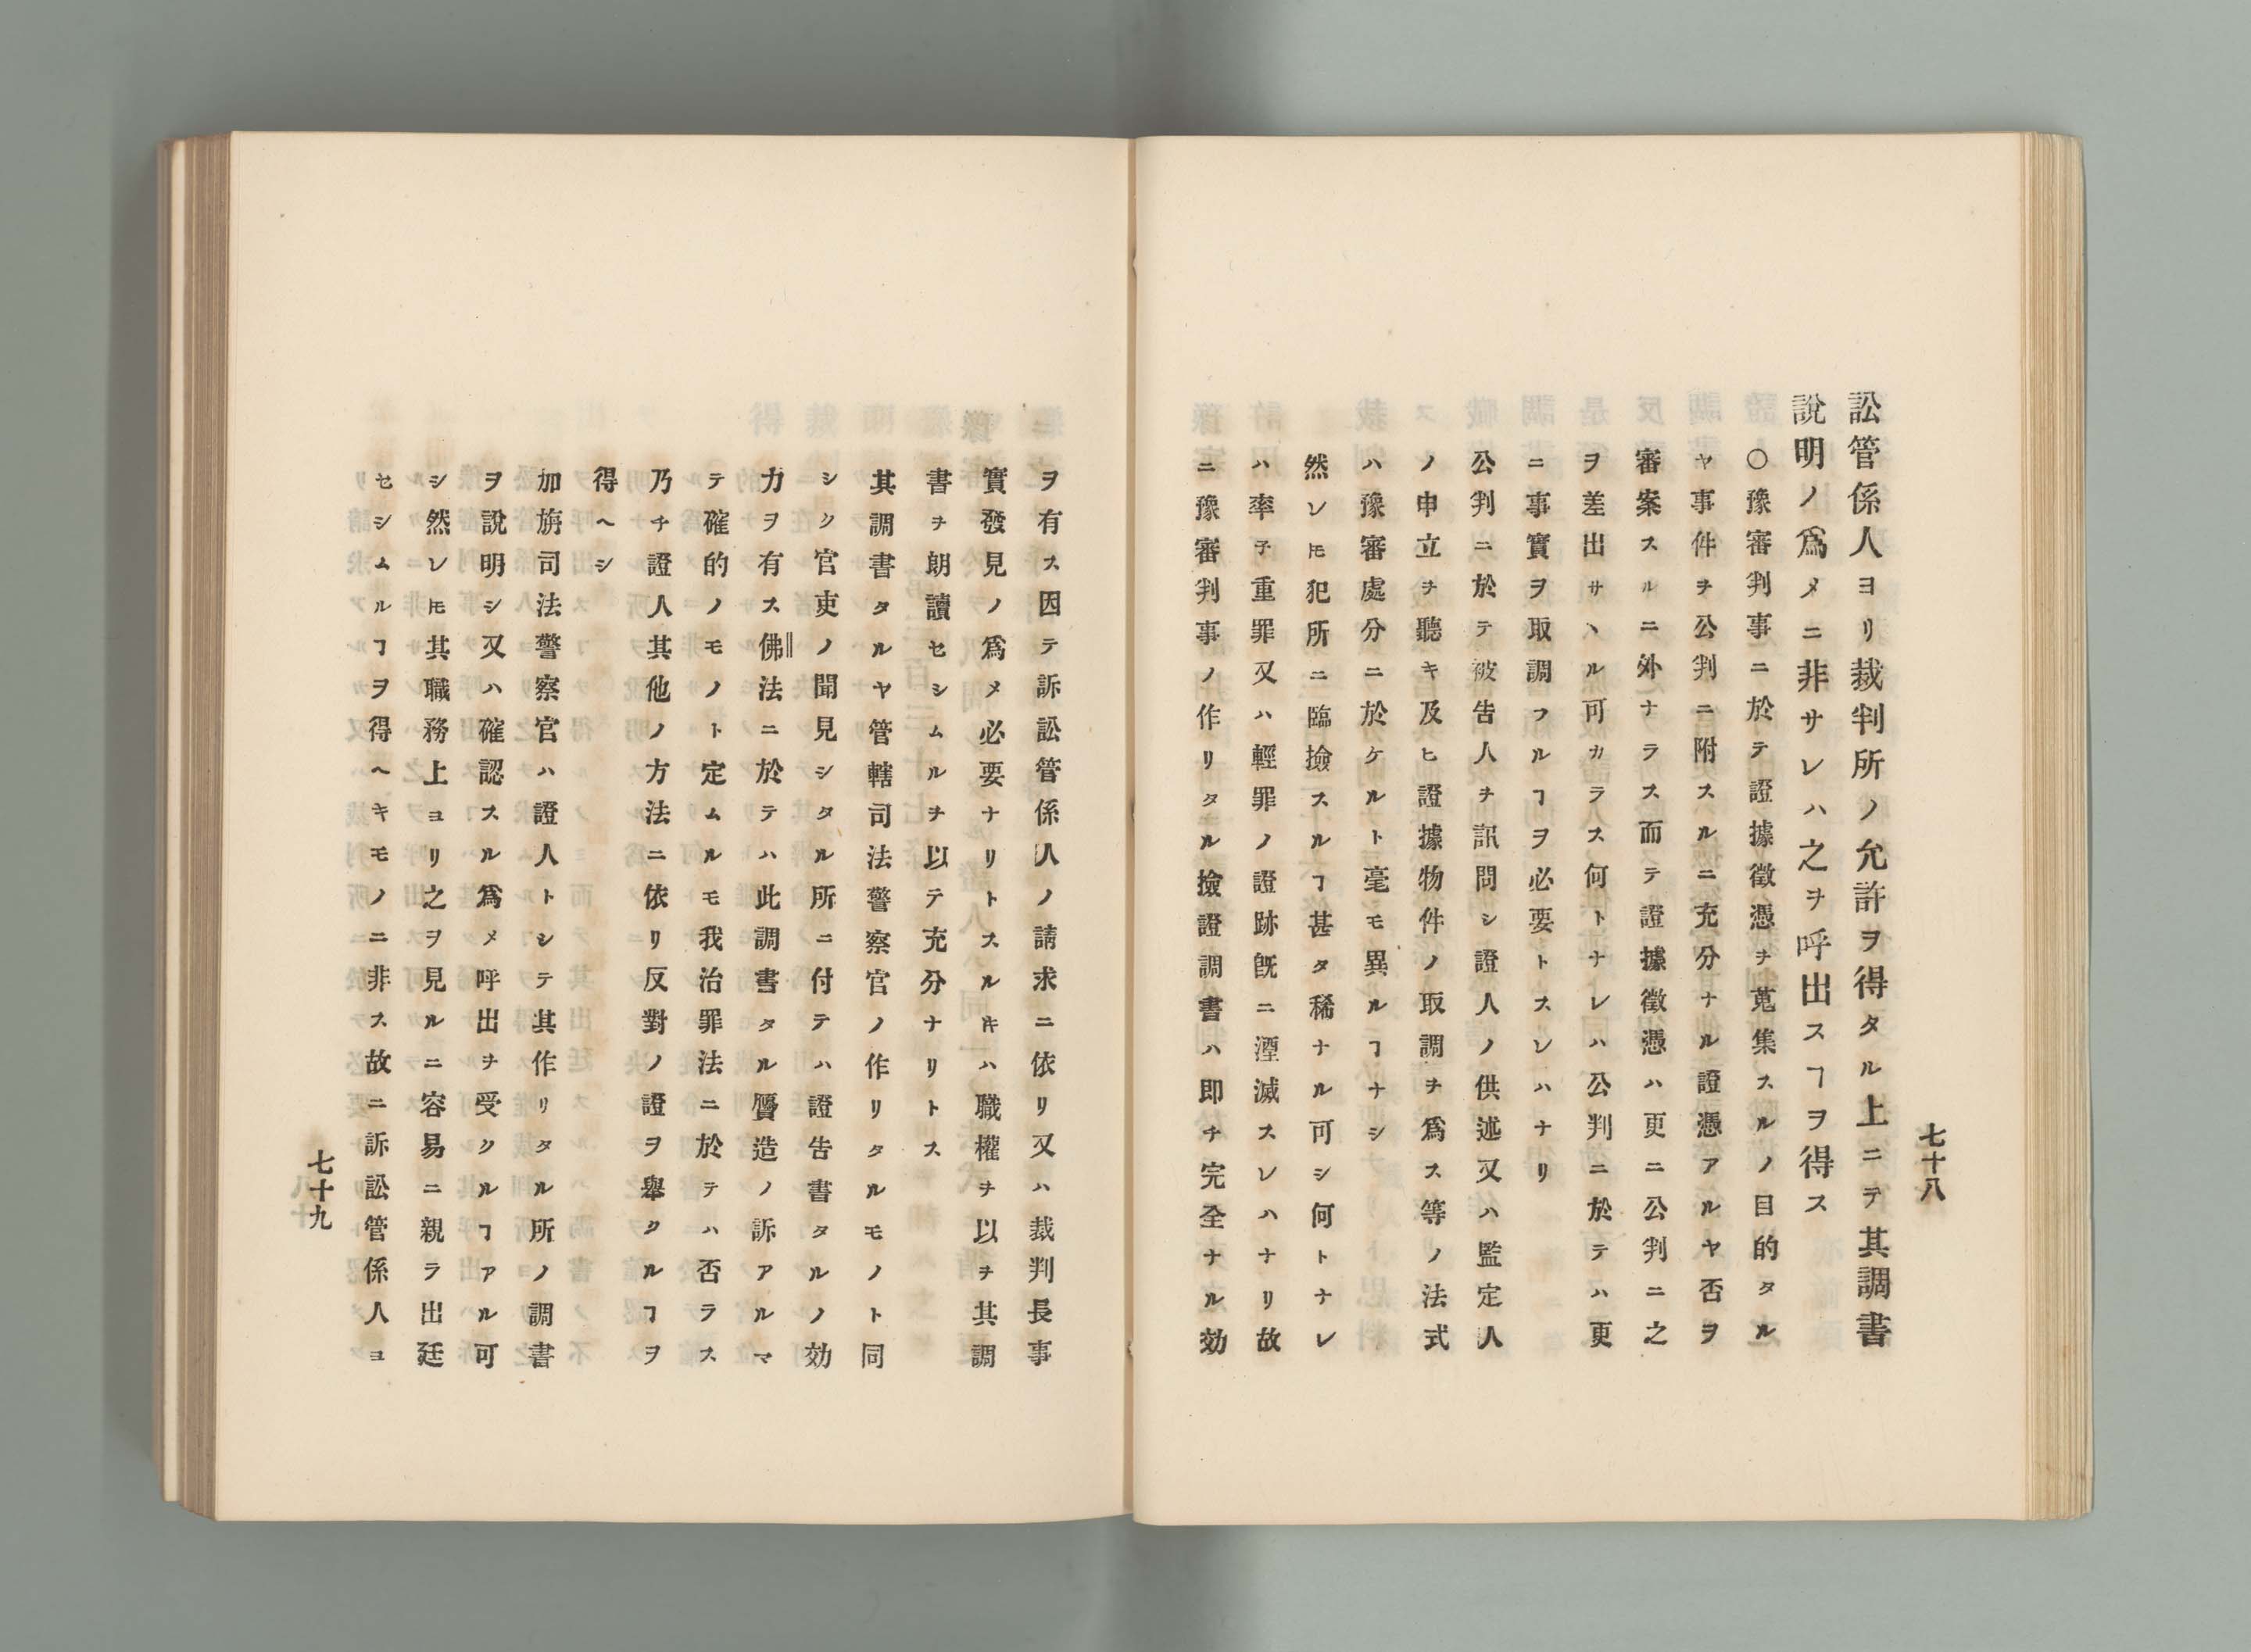 七十八
訟管係人ヨリ裁判所ノ允許ヲ得タル上ニテ其調書
說明ノ爲メニ非サレハ之ヲ呼出スヿヲ得ス
〇豫審判事ニ於テ證據徵憑ヲ蒐集スルノ目的タル
ヤ事件ヲ公判ニ附スルニ充分ナル證憑アルヤ否ヲ
審案スルニ外ナラス而テ證據徵憑ハ更ニ公判ニ之
ヲ差出サヽル可カラス何トナレハ公判ニ於テハ更
ニ事實ヲ取調フルヿヲ必要トスレハナリ
公判ニ於テ被告人ヲ訊問シ證人ノ供述又ハ監定人
ノ申立ヲ聽キ及ヒ證據物件ノ取調ヲ爲ス等ノ法式
ハ豫審處分ニ於ケルト毫モ異ルヿナシ
然レ𪜈犯所ニ臨撿スルヿ甚タ稀ナル可シ何トナレ
ハ率子重罪又ハ輕罪ノ證跡旣ニ湮滅スレハナリ故
ニ豫審判事ノ作リタル撿證調書ハ即チ完全ナル効
ヲ有ス因テ訴訟管係人ノ請求ニ依リ又ハ裁判長事
實發見ノ爲メ必要ナリトスルキハ職權ヲ以テ其調
書ヲ朗讀セシムルヲ以テ充分ナリトス
其調書タルヤ管轄司法警察官ノ作リタルモノト同
シク官吏ノ聞見シタル所ニ付テハ證告書タルノ効
力ヲ有ス佛法ニ於テハ此調書タル贋造ノ訴アルマ
テ確的ノモノト定ムルモ我治罪法ニ於テハ否ラス
乃チ證人其他ノ方法ニ依リ反對ノ證ヲ舉クルヿヲ
得ヘシ
加旃司法警察官ハ證人トシテ其作リタル所ノ調書
ヲ說明シ又ハ確認スル爲メ呼出ヲ受クルヿアル可
シ然レ𪜈其職務上ヨリ之ヲ見ルニ容易ニ親ラ出廷
セシムルヿヲ得ヘキモノニ非ス故ニ訴訟管係人ヨ
七十九